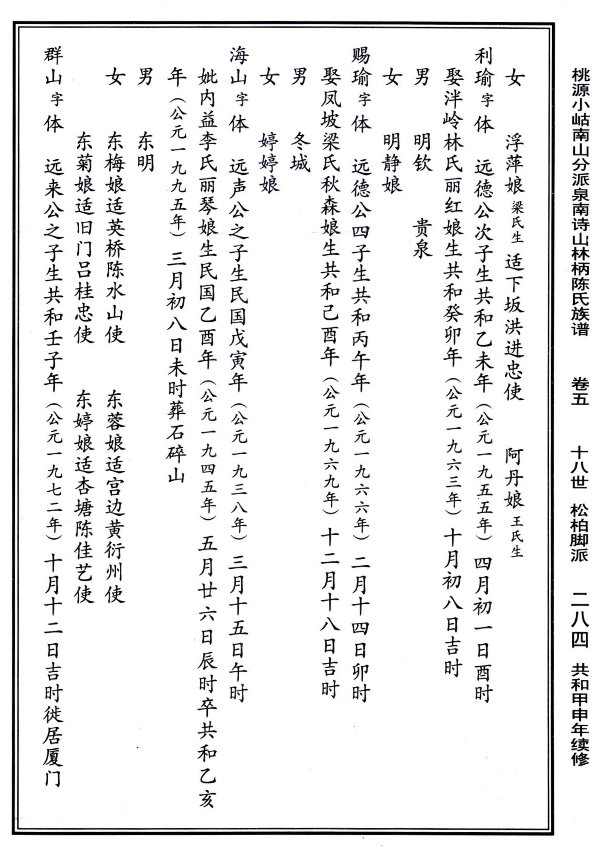 桃源小岵南山分派泉南诗山林柄陈氏族谱 卷五 十八世 松柏脚派 二八四 共和甲申年续修
女 浮萍娘 梁氏生 适下坂洪进忠使 阿丹娘 王氏生
利瑜字体 远德公次子生共和乙未年（公元一九五五年）四月初一日酉时
娶泮岭林氏丽红娘生共和癸卯年（公元一九六三年）十月初八日吉时
男 明钦 贵泉
女 明静娘
赐瑜字体 远德公四子生共和丙午年（公元一九六六年）二月十四日卯时
娶凤坡梁氏秋森娘生共和己酉年（公元一九六九年）十二月十八日吉时
男 冬城
女 婷婷娘
海山字体 远声公之子生民国戊寅年（公元一九三八年）三月十五日午时
妣内益李氏丽琴娘生民国乙酉年（公元一九四五年）五月廿六日辰时卒共和乙亥
年（公元一九九五年）三月初八日未时葬石碎山
男 东明
女 东梅娘适英桥陈水山使 东蓉娘适宫边黄衍州使
东菊娘适旧门吕桂忠使 东婷娘适杏塘陈佳艺使
群山字体 远来公之子生共和壬子年（公元一九七二年）十月十二日吉时徙居厦门